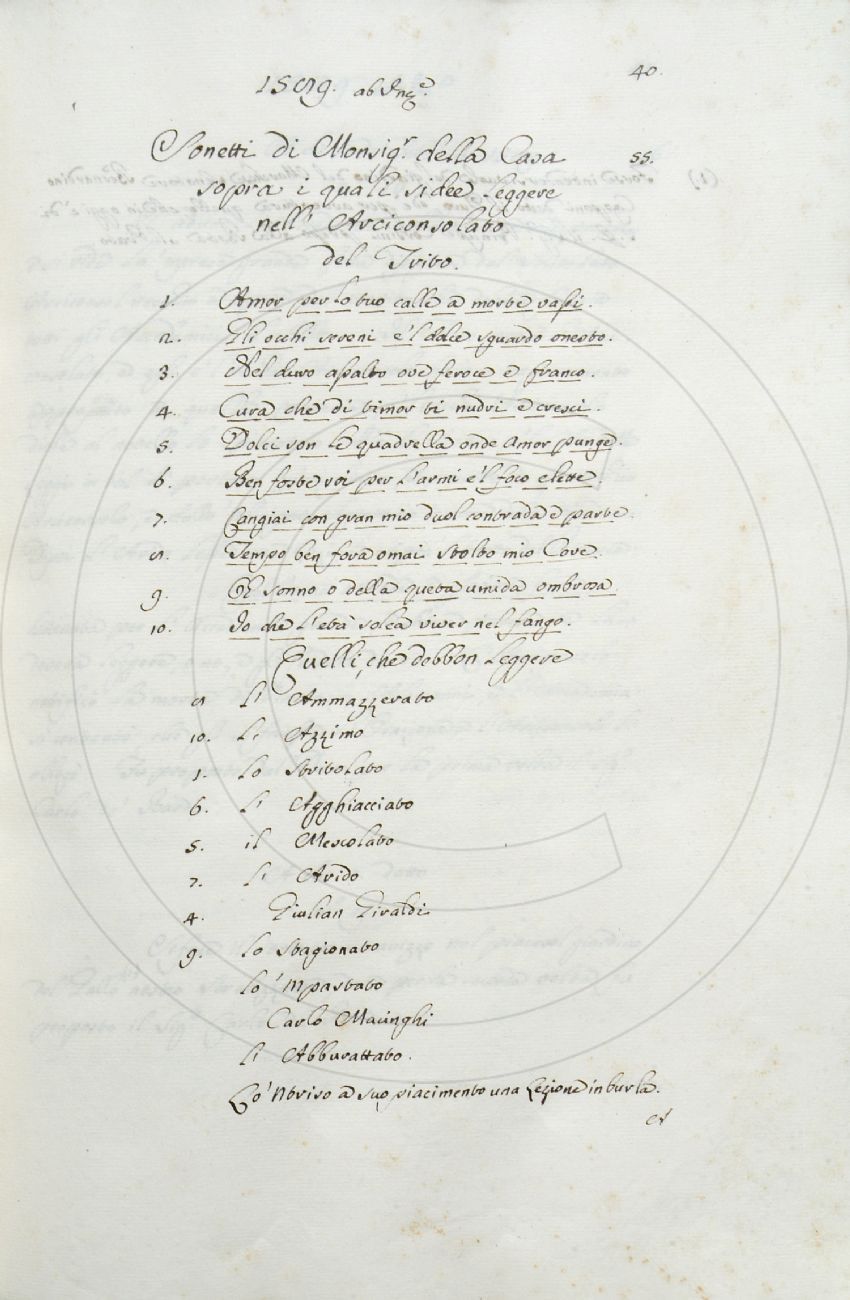 40.
1589. ab Inc.e
Sonetti di Monsig.r della Casa 55.
sopra i quali si dee leggere
nell' Arciconsolato
del Trito.
1. Amor per lo tuo calle a morte vassi.
2. Gli occhi sereni e 'l dolce sguardo onesto.
3. Nel duro assalto ove feroce e franco.
4. Cura che di timor ti nudri e cresci.
5. Dolci son le quadrella onde Amor punge.
6. Ben foste voi per l'armi e 'l foco elette.
7. Cangiai con gran mio duol contrada e parte.
8. Tempo ben fora omai stolto mio Core.
9. O sonno o della queta umida ombrosa.
10. Io che l'età solea viver nel fango.
Quelli, che debbon leggere
8 L' Ammazzerato
10. L' Azzimo
1. Lo Stritolato
6. L' Agghiacciato
5. il Mescolato
7. L' Arido
4. Giulian Giraldi
9. Lo Stagionato
Lo 'Mpastato
Carlo Macinghi
L' Abburattato.
Lo 'Ntriso a suo piacimento una Lezione in burla.